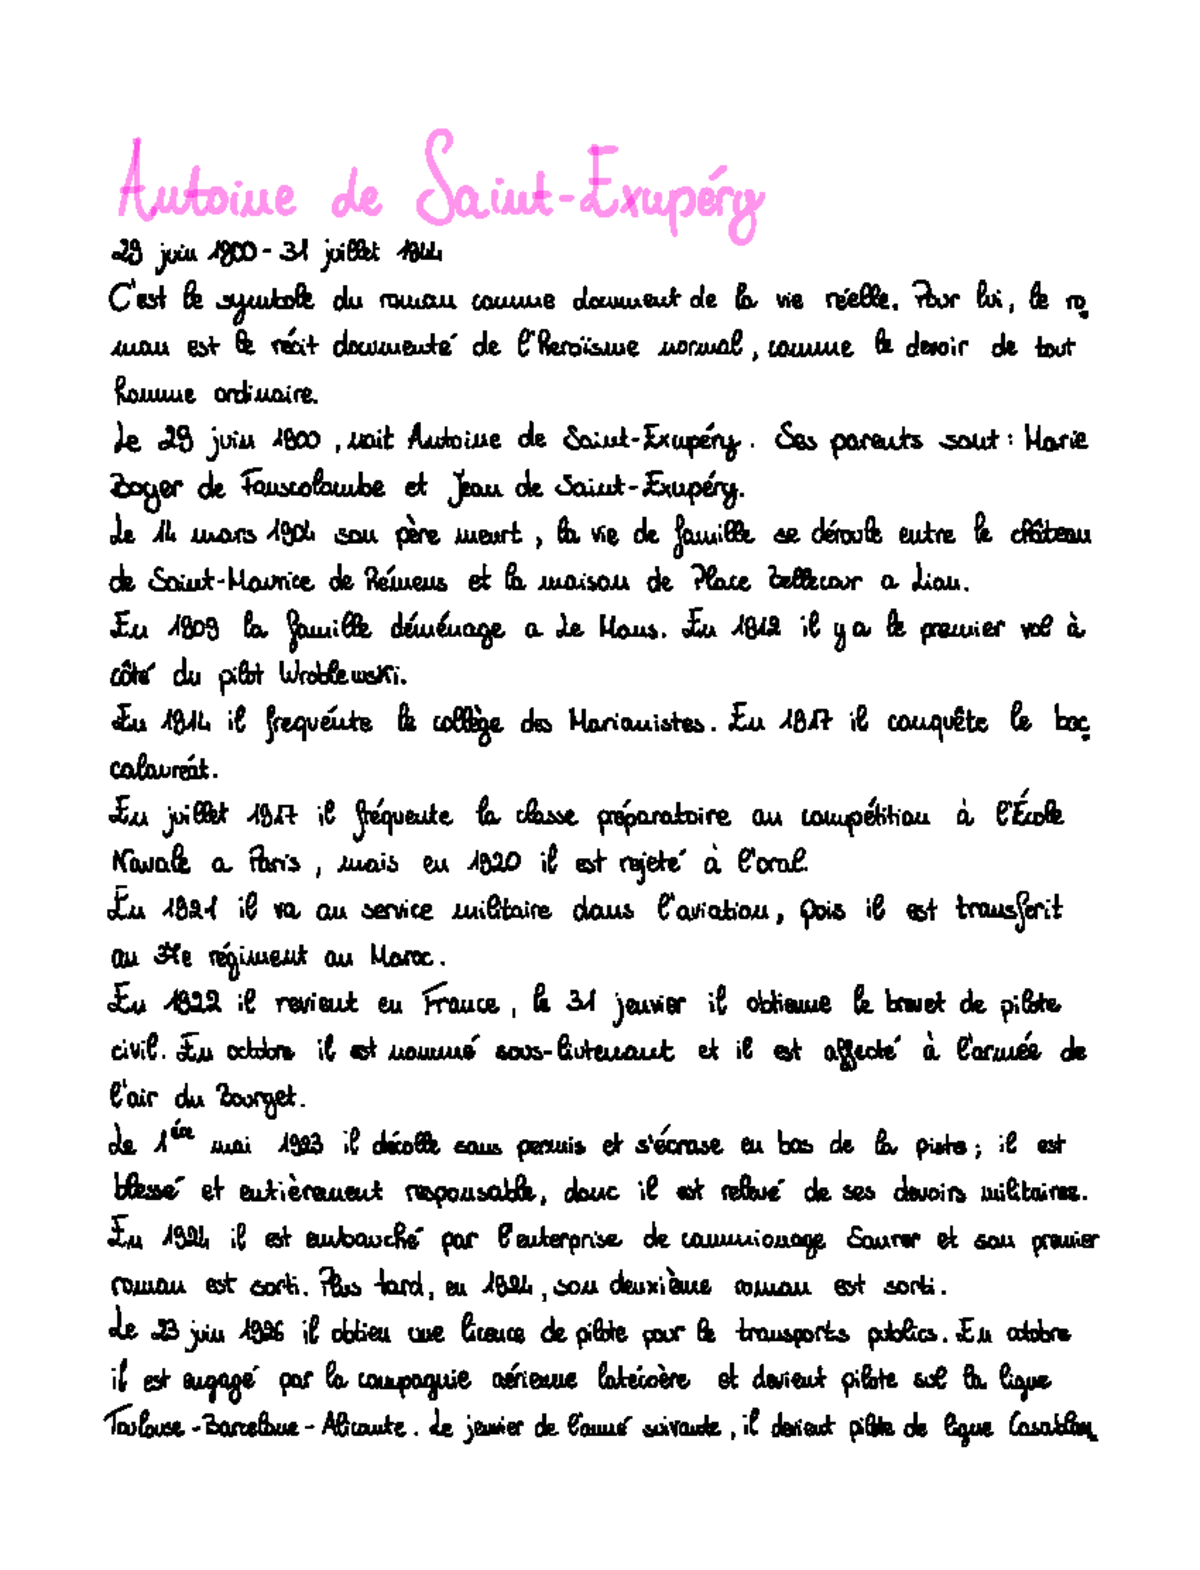 Antoine de Saint-Exupéry
29 juin 1900 - 31 juillet 1944
C'est le symbole du roman comme document de la vie réelle. Pour lui, le ro
man est le récit documenté de l'Heroïsme normal, comme le devoir de tout
homme ordinaire.
Le 29 juin 1900, nait Antoine de Saint-Exupéry. Ses parents sont: Marie
Boyer de Fouscolombe et Jean de Saint-Exupéry.
Le 14 mars 1904 son père meurt, la vie de famille se déroule entre le château
de Saint-Maurice de Rémens et la maison de Place Bellecour a Lion.
En 1909 la famille déménage a Le Mans. En 1912 il y a le premier vol à
côté du pilot Wroblewski.
En 1914 il frequénte le collège des Marianistes. En 1917 il conquête le bac
calauréat.
En juillet 1917 il fréquente la classe préparatoire au compétition à l'École
Navale a Paris, mais en 1920 il est rejeté à l'oral.
En 1921 il va au service militaire dans l'aviation, pois il est transferit
au 37e régiment au Maroc.
En 1922 il revient en France, le 31 jenvier il obtienne le brevet de pilote
civil. En octobre il est nommé sous-liutenant et il est affecté à l'armée de
l'air du Bourget.
Le 1ère mai 1923 il décolle sans permis et s'écrase en bas de la piste; il est
blessé et entièrement responsable, donc il est relevé de ses devoirs militaires.
En 1924 il est embauché par l'enterprise de cammionage Saurer et son premier
roman est sorti. Plus tard, en 1924, son deuxième roman est sorti.
Le 23 juin 1926 il obtien une licence de pilote pour le transports publics. En octobre
il est engagé par la compagnie aérienne latécoère et devient pilote sul la ligne
Toulouse - Barcelone - Alicante. Le jenvier de l'anné suivante, il devient pilote de ligne Casablan